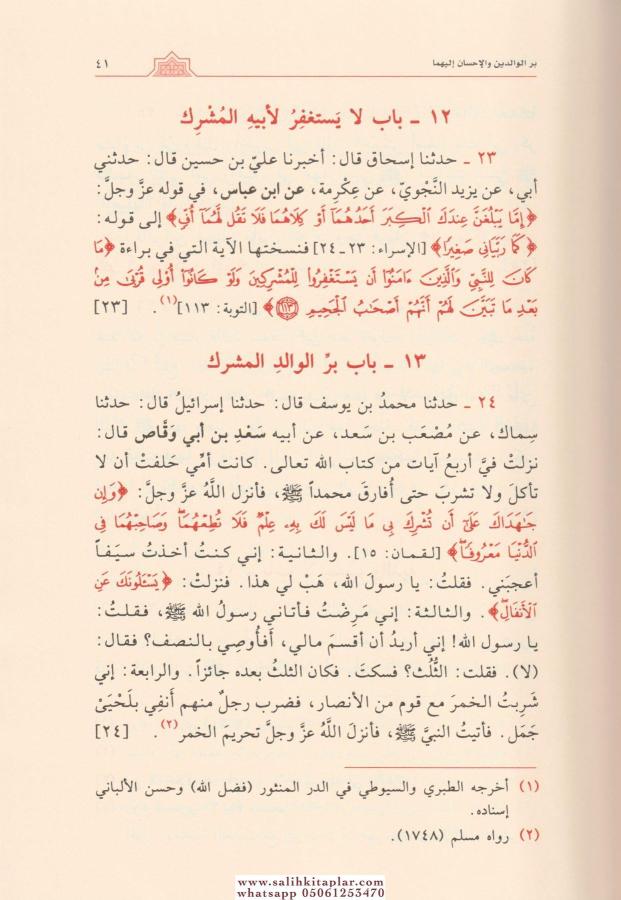 بر الوالدين والإحسان إليهما ٤١
١٢ - باب لا يَستغفِرُ لأبيهِ المُشْرِك
٢٣ - حدثنا إسحاق قال: أخبرنا عليّ بن حسين قال: حدثني
أبي، عن يزيد النَّحْويّ، عن عِكْرِمة، عن ابن عباس، في قوله عزَّ وجلَّ:
﴿إِمَّا يَبْلُغَنَّ عِندَكَ ٱلْكِبَرَ أَحَدُهُمَا أَوْ كِلَاهُمَا فَلَا تَقُل لَّهُمَا أُفٍّ﴾ إلى قوله:
﴿كَمَا رَبَّيَانِي صَغِيرًا﴾ [الإسراء: ٢٣ـ٢٤] فنسختها الآية التي في براءة ﴿مَا
كَانَ لِلنَّبِيِّ وَٱلَّذِينَ ءَامَنُوٓا۟ أَن يَسْتَغْفِرُوا۟ لِلْمُشْرِكِينَ وَلَوْ كَانُوٓا۟ أُو۟لِي قُرْبَىٰ مِنۢ
بَعْدِ مَا تَبَيَّنَ لَهُمْ أَنَّهُمْ أَصْحَٰبُ ٱلْجَحِيمِ ١١٣﴾ [التوبة: ١١٣](١). [٢٣]
١٣ - باب برِّ الوالدِ المشرك
٢٤ - حدثنا محمدُ بن يوسف قال: حدثنا إسرائيلُ قال: حدثنا
سِماك، عن مُصْعَب بن سَعد، عن أبيه سَعْدِ بن أبي وَقَّاص قال:
نزلتْ فيَّ أربعُ آيات من كتاب الله تعالى. كانت أمِّي حَلفتْ أن لا
تأكلَ ولا تشربَ حتى أُفارقَ محمداً ﷺ، فأنزل اللَّهُ عزَّ وجلَّ: ﴿وَإِن
جَٰهَدَاكَ عَلَىٰٓ أَن تُشْرِكَ بِي مَا لَيْسَ لَكَ بِهِۦ عِلْمٌ فَلَا تُطِعْهُمَا وَصَاحِبْهُمَا فِي
ٱلدُّنْيَا مَعْرُوفًا﴾ [لقمان: ١٥]. والثـانيـة: إني كنـتُ أخـذتُ سيَـفـاً
أعجبَني. فقلتُ: يا رسولَ الله، هَبْ لي هذا. فنزلتْ: ﴿يَسْـَٔلُونَكَ عَنِ
ٱلْأَنفَالِ﴾. والثـالثـة: إني مَـرِضْتُ فـأتـاني رسولُ الله ﷺ، فـقـلـتُ:
يا رسول الله! إني أريدُ أن أقسمَ مالي، أَفأُوصِي بالنصف؟ فقال:
(لا). فقلت: الثُّلُث؟ فسكتَ. فكان الثلثُ بعده جائزاً. والرابعة: إني
شَرِبتُ الخمرَ مع قوم من الأنصار، فضرب رجلٌ منهم أَنفِي بلَحْيَيْ
جَمَل. فأتيتُ النبيَّ ﷺ، فأنزلَ اللَّهُ عزَّ وجلَّ تحريمَ الخمر(٢). [٢٤]
(١) أخرجه الطبري والسيوطي في الدر المنثور (فضل الله) وحسن الألباني
إسناده.
(٢) رواه مسلم (١٧٤٨).
www.salihkitaplar.com
whatsapp 05061253470